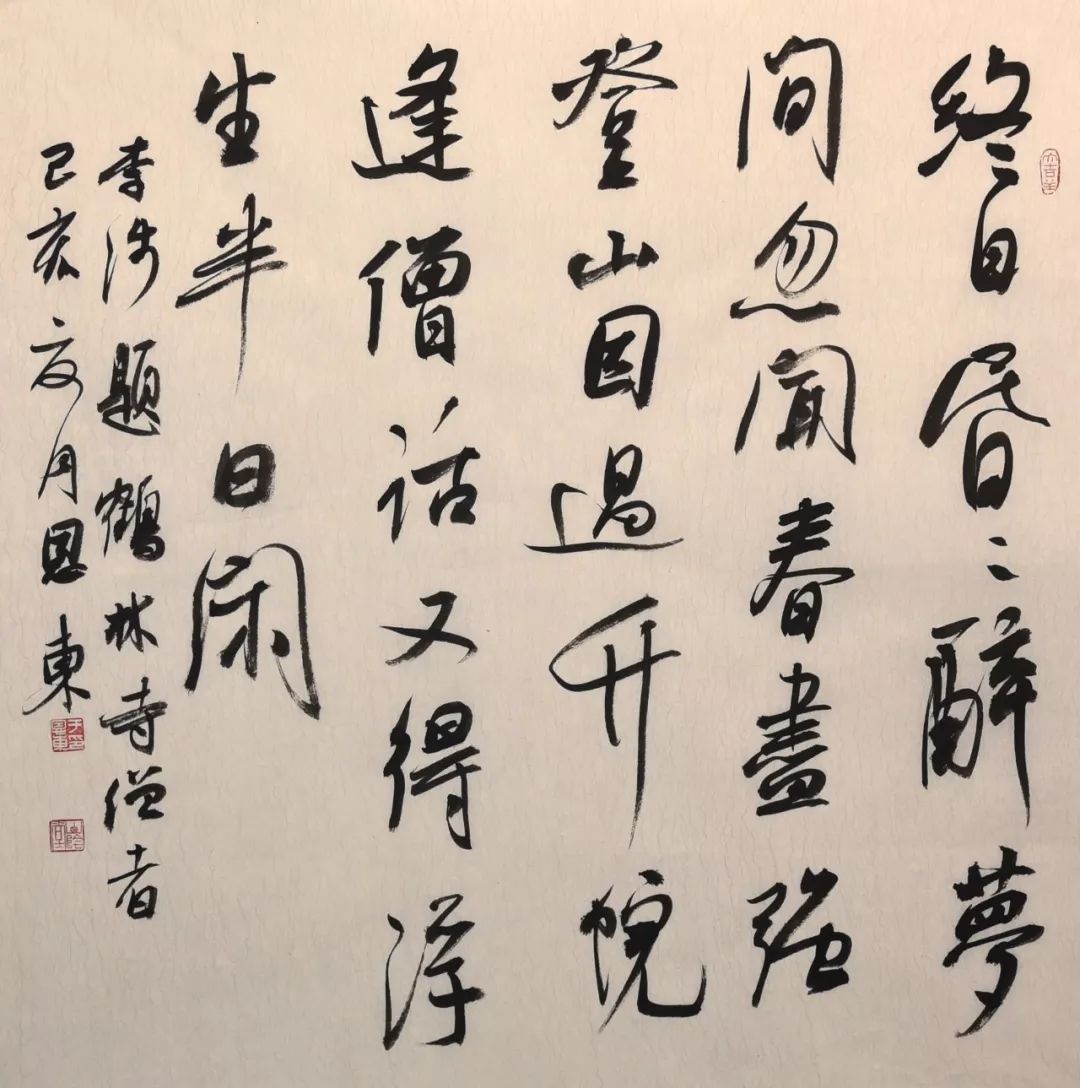 大吉羊
終日昏〻醉夢
間忽聞春盡强
登山因過竹院
逢僧話又得浮
生半日閑
李涉題鶴林寺僧舍
己亥夏月恩東